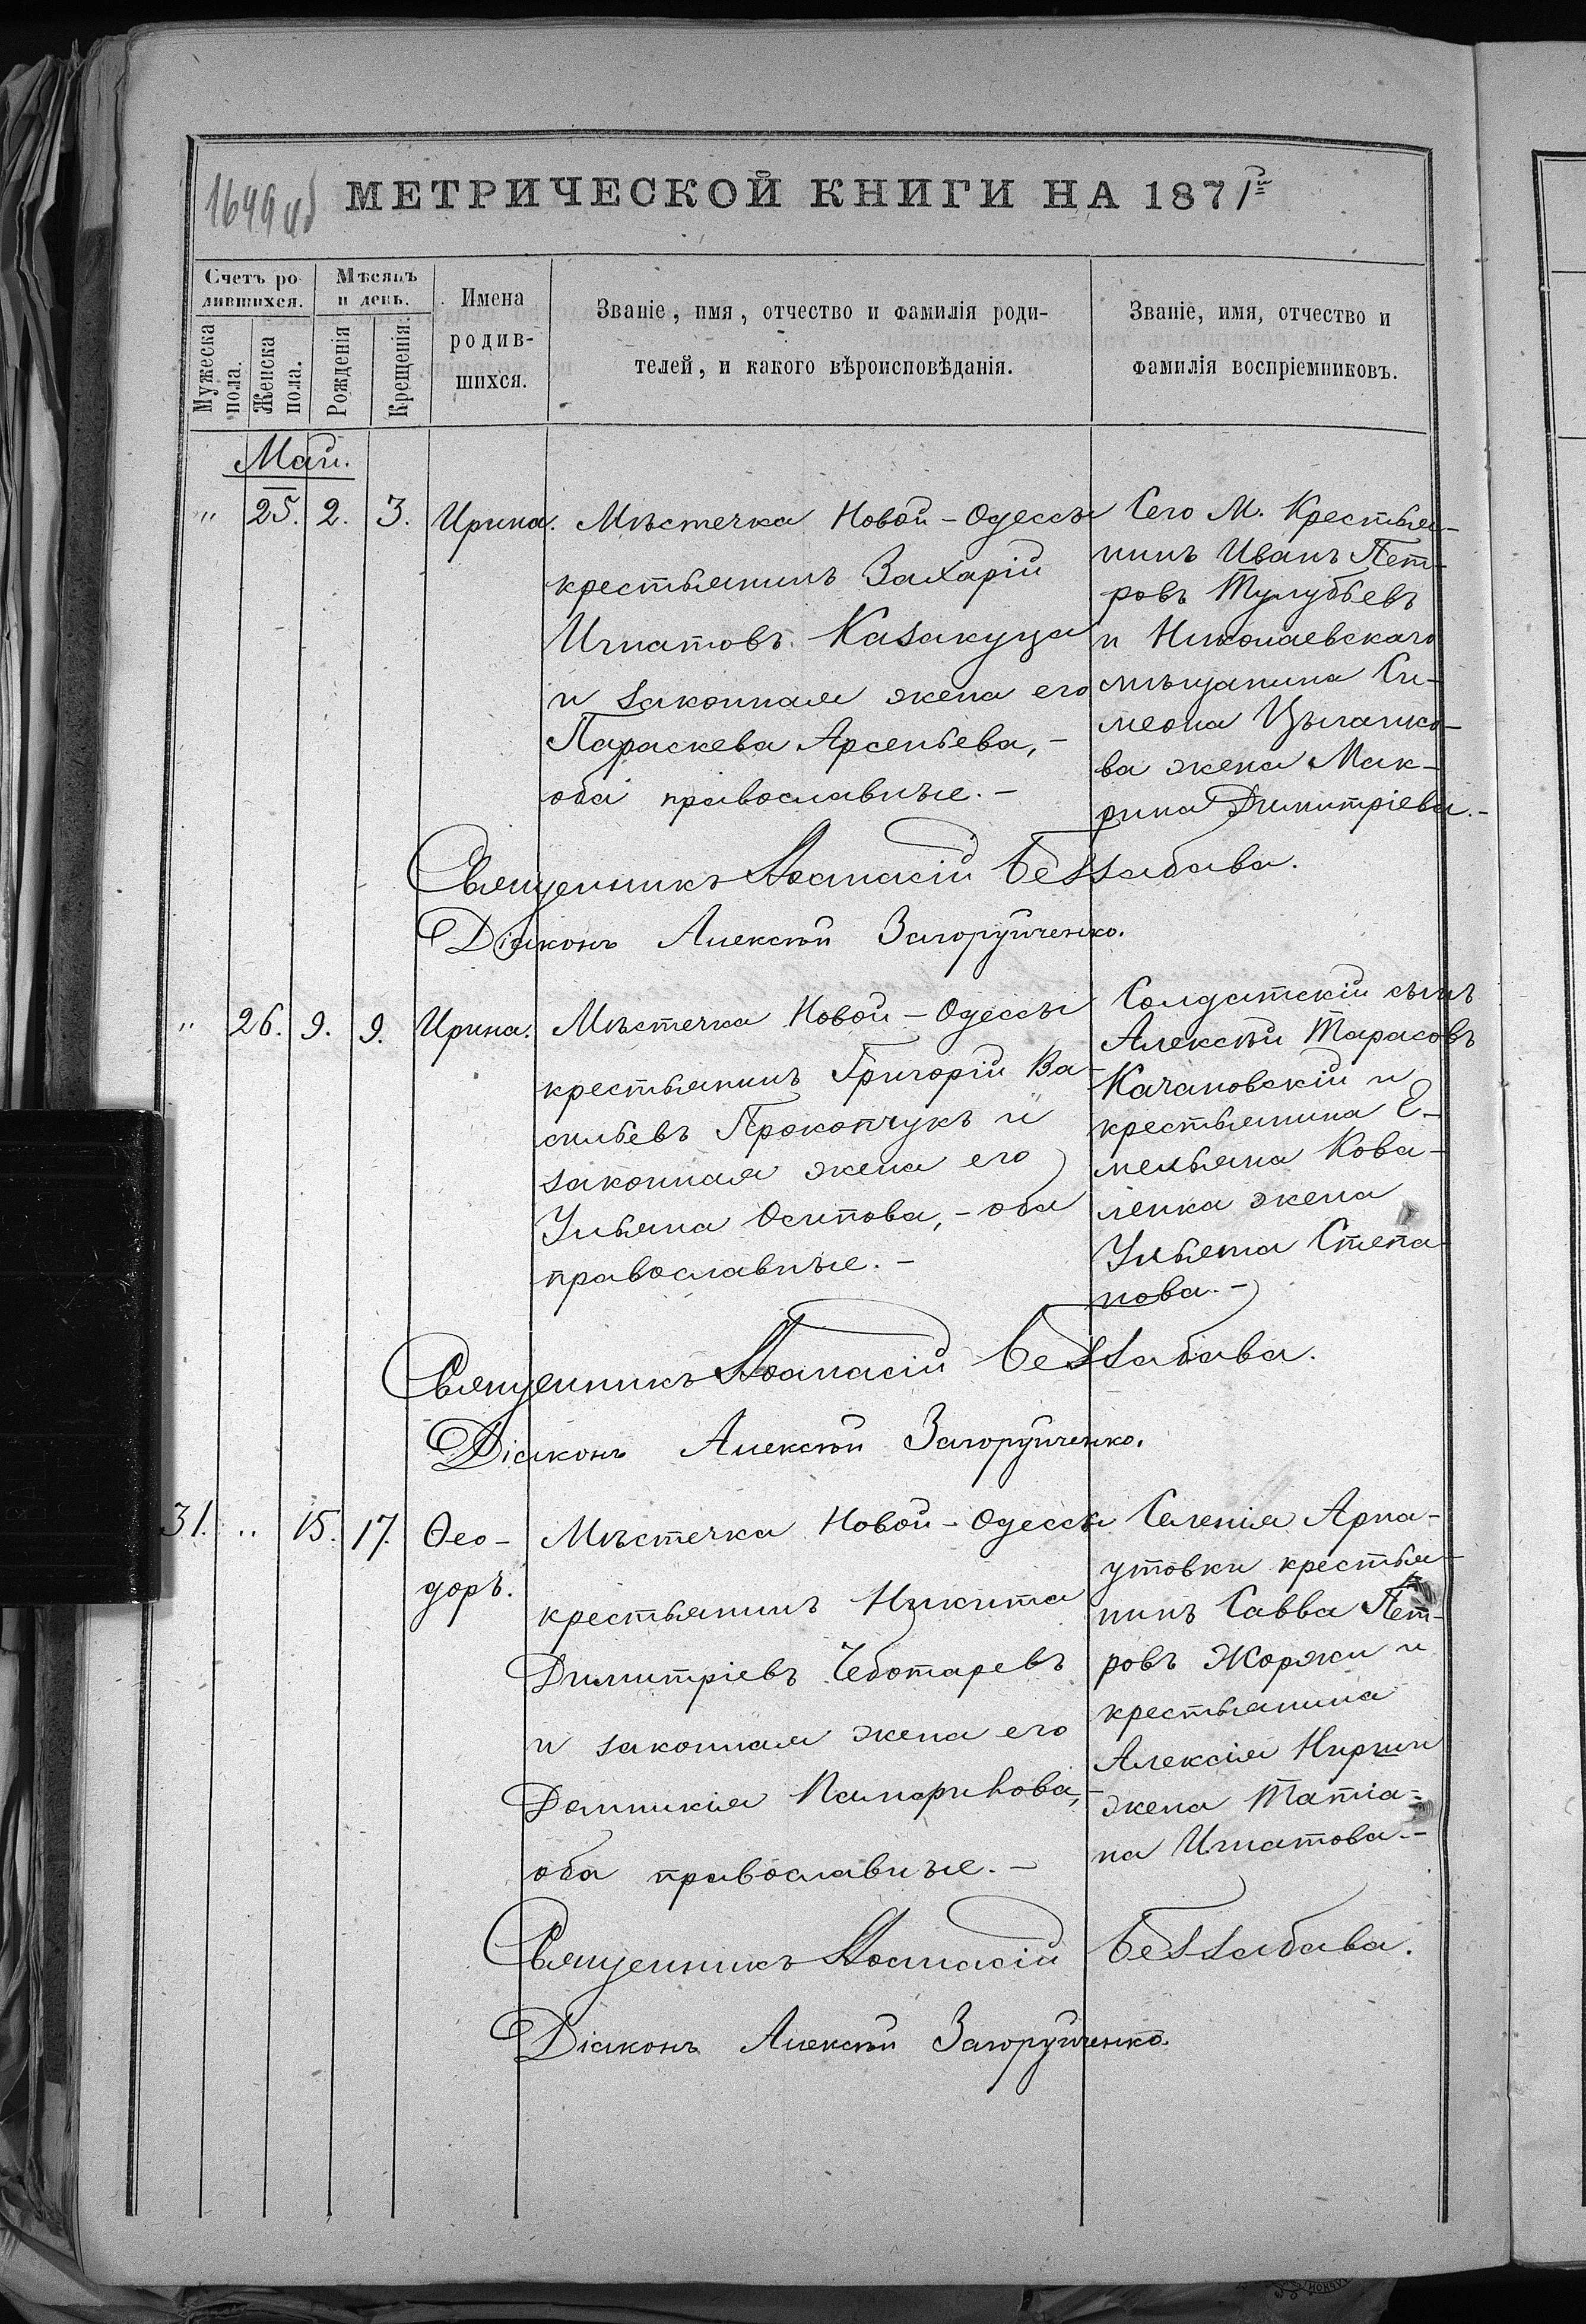 1649 об
МЕТРИЧЕСКОЙ КНИГИ НА 1871
Счетъ ро-
лившихся.
Мѣсяцъ
и день.
Имена
родив-
шихся.
Званіе, имя, отчество и фамилія роди-
телей, и какого вѣроисповѣданія.
Званіе, имя, отчество и
фамилія воспріемниковъ.
Мужеска
пола.
Женска
пола.
Рожденія
Крещенія.
Май.
" 25. 2. 3. Ирина.
Мѣстечка Новой-Одессы
крестьянинъ Захарій
Игнатовъ Казакуца
и законная жена его
Параскева Арсеньева,-
оба православные.-
Сего М. Крестья-
нинъ Иванъ Пет-
ровъ Тулубьевъ
и Николаевскаго
мѣщанина Си-
меона Цыганко-
ва жена Мак-
рина Димитріева.-
Священникъ Аѳанасій Беззабава.
Діаконъ Алексѣй Загоруйченко.
" 26. 9. 9. Ирина.
Мѣстечка Новой-Одессы
крестьянинъ Григорій Ва-
сильевъ Прокопчукъ и
законная жена его
Ульяна Осипова,- оба
православные.-
Солдатскій сынъ
Алексѣй Тарасовъ
Качановскій и
крестьянина Е-
мельяна Кова-
ленка жена
Ульяна Степа-
нова.-
Священникъ Аѳанасій Беззабава.
Діаконъ Алексѣй Загоруйченко.
31. " 15. 17. Ѳео-
доръ.
Мѣстечка Новой-Одессы
крестьянинъ Никита
Димитріевъ Чеботаревъ
и законная жена его
Домникія
оба православные.-
Селенія Арна-
утовки крестья-
нинъ Савва Пет-
ровъ Жоржи и
крестьянина
Алексія
жена Татіа-
на Игнатова.-
Священникъ Аѳанасій Беззабава.
Діаконъ Алексѣй Загоруйченко.